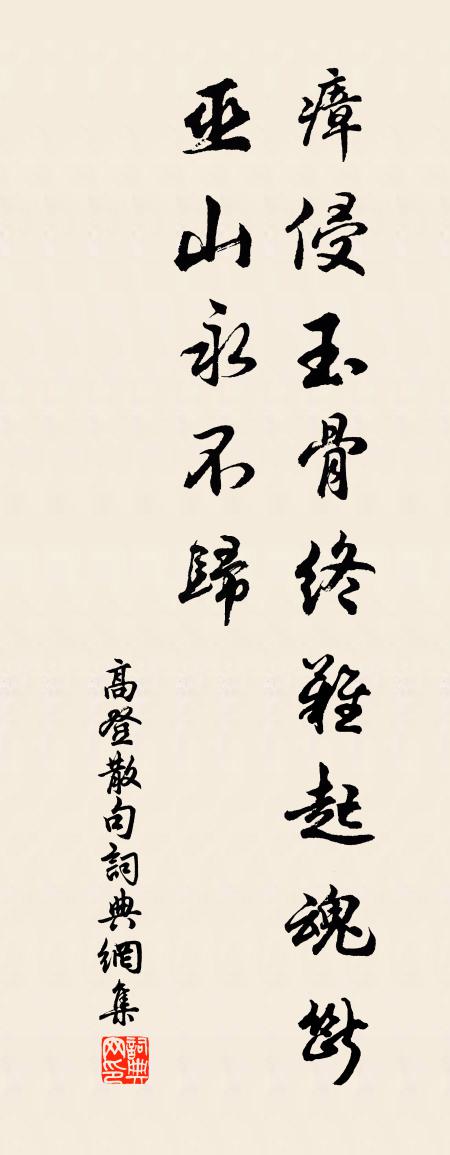 瘴侵玉骨終難起魂斷
巫山永不歸
高登散句詞典網集
詞典网印